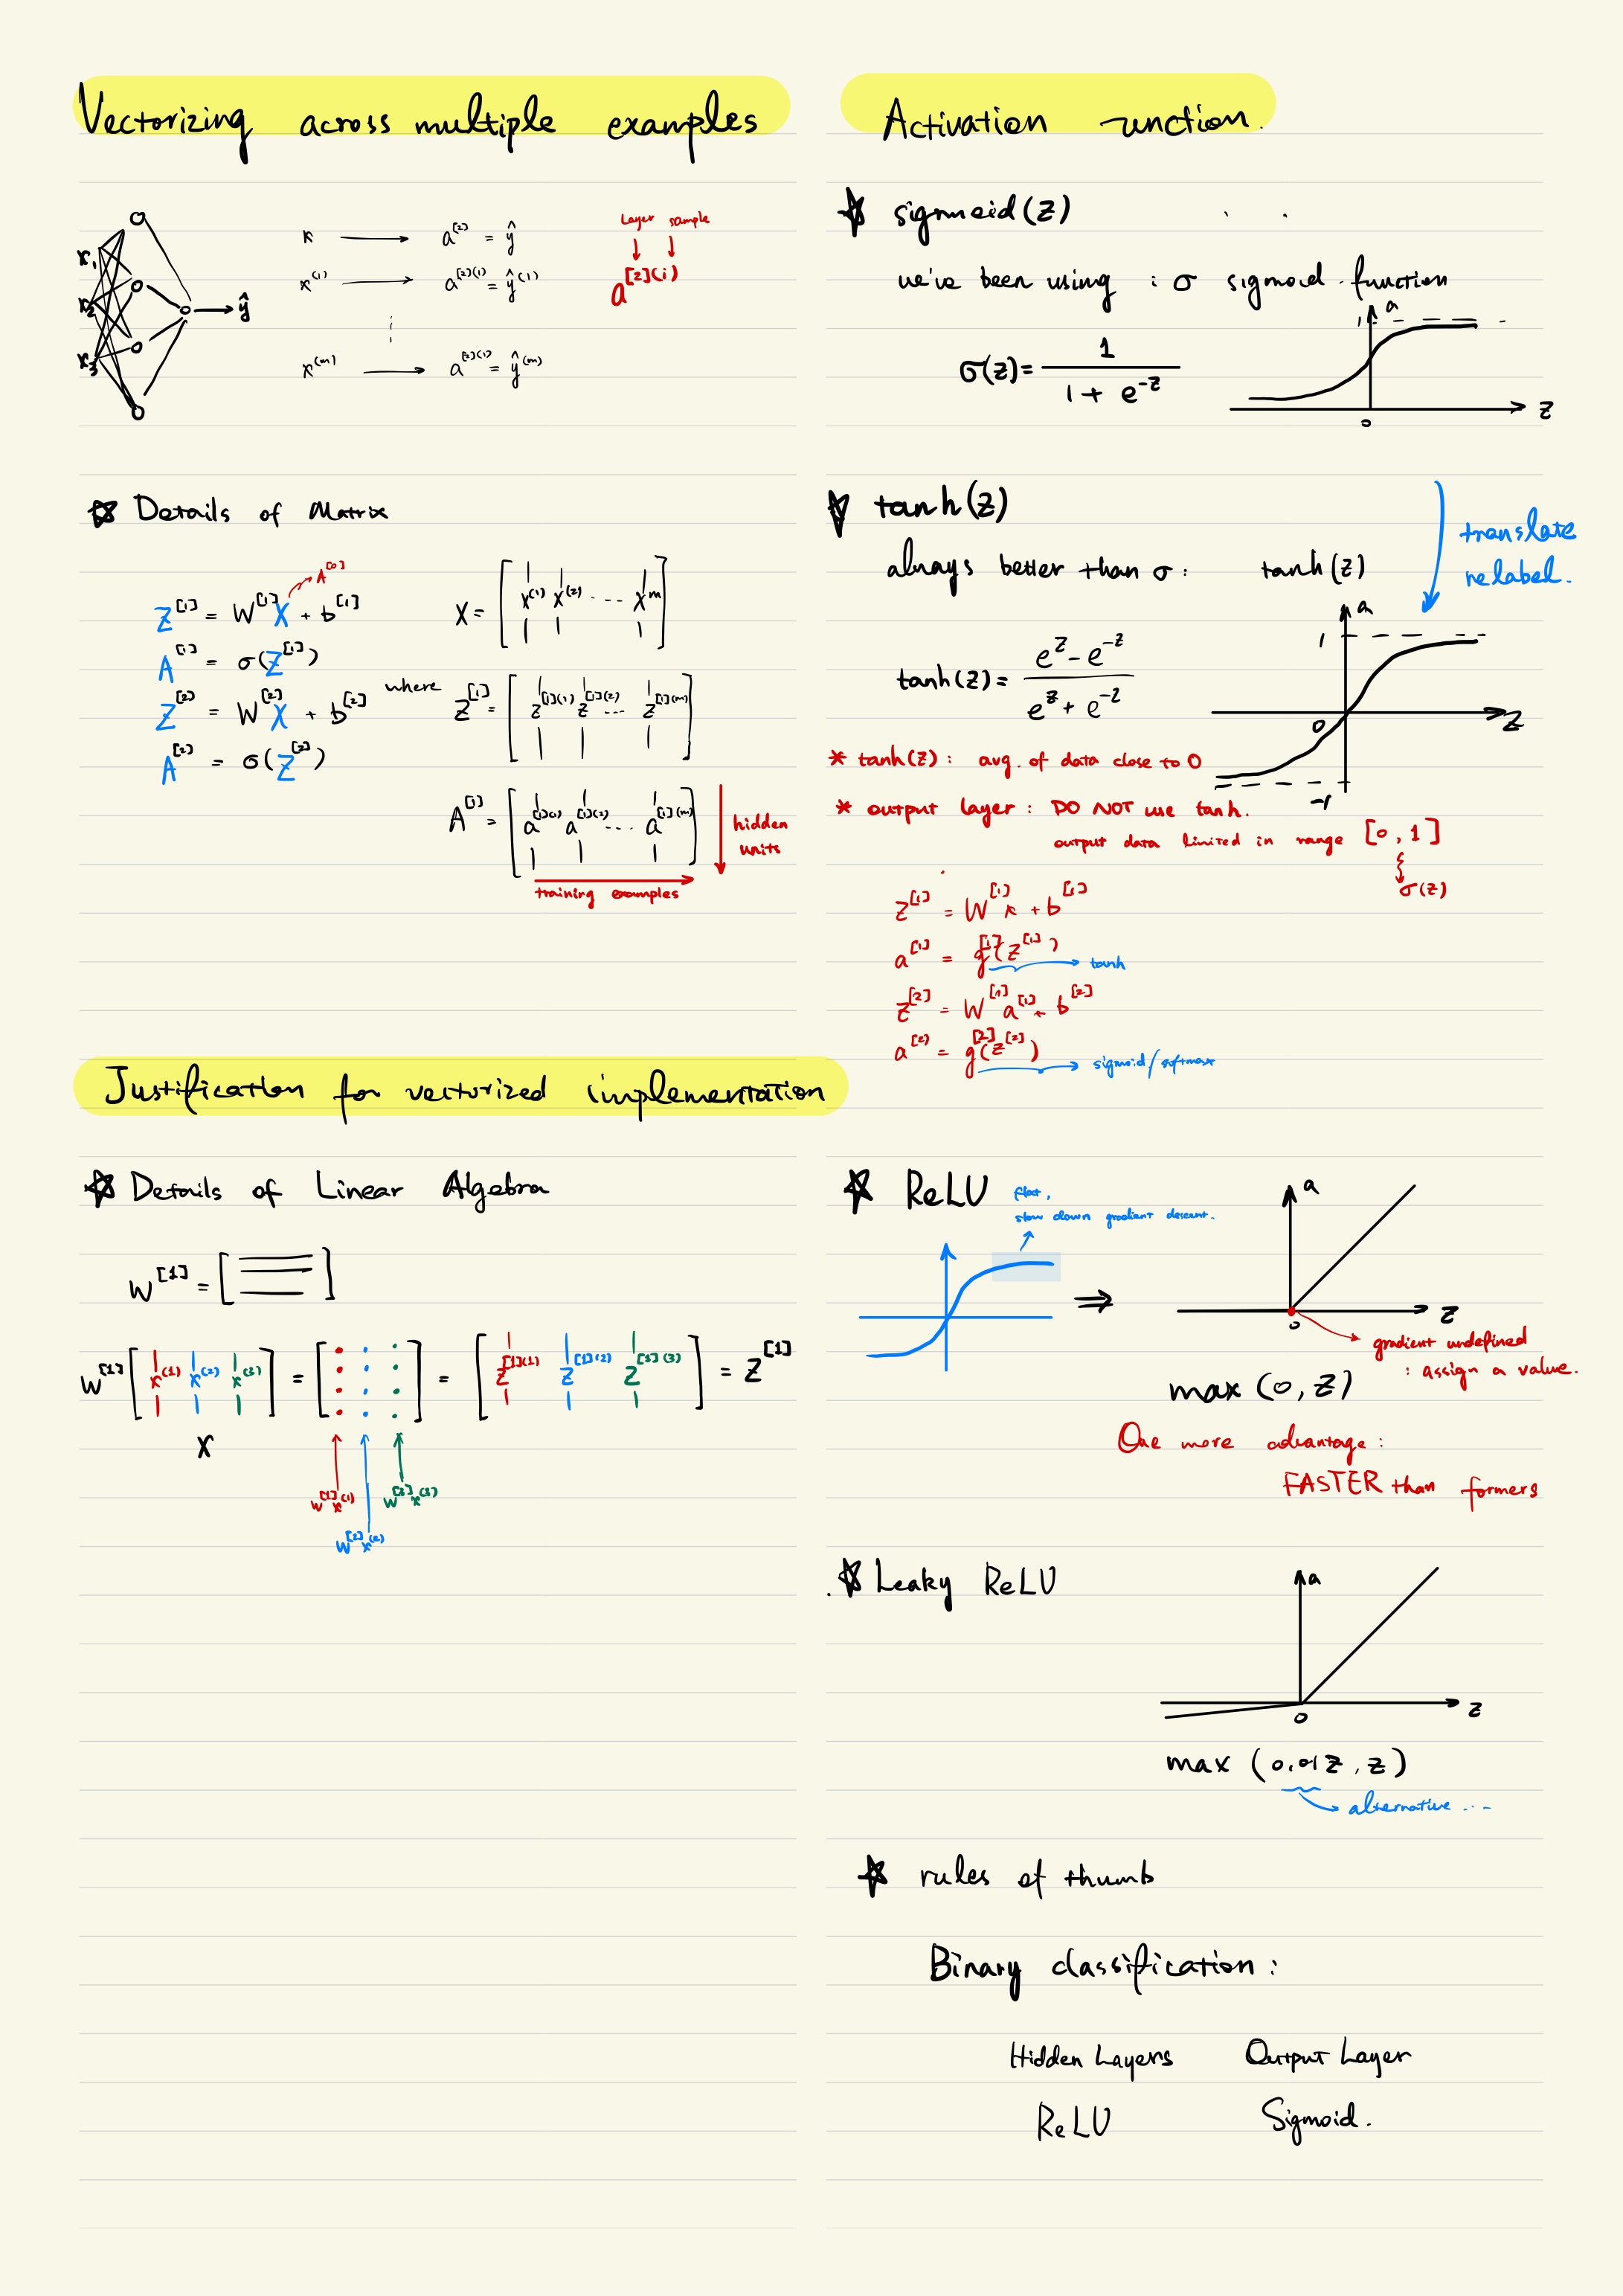 Vectorizing across multiple examples
x₁
x₂
x₃
ŷ
x → a^[2] = ŷ
x^(1) → a^[2](1) = ŷ^(1)
⋮
x^(m) → a^[2](1) = ŷ^(m)
Layer sample
a^[2](i)
☆ Details of Matrix
A^[0]
Z^[1] = W^[1]X + b^[1]
A^[1] = σ(Z^[1])
Z^[2] = W^[2]X + b^[2]
A^[2] = σ(Z^[2])
where
X = [x^(1) x^(2) ... x^m]
Z^[1] = [z^[1](1) z^[1](2) ... z^[1](m)]
A^[1] = [a^[1](1) a^[1](2) ... a^[1](m)]
hidden
units
training examples
Justification for vectorized implementation
☆ Details of Linear Algebra
W^[1] = [ ]
W^[1] [x^(1) x^(2) x^(3)] = [ ] = [z^[1](1) z^[1](2) z^[1](3)] = Z^[1]
X
W^[1]x^(1)
W^[2]x^(2)
Activation unction.
☆ sigmoid(z)
we've been using : σ sigmoid function
σ(z) = 1 / (1 + e^-z)
1
a
0
z
☆ tanh(z)
translate
relabel.
always better than σ: tanh(z)
tanh(z) = (e^z - e^-z) / (e^z + e^-z)
a
1
0
z
-1
* tanh(z): avg. of data close to 0
* output layer: DO NOT use tanh.
output data limited in range [0, 1]
σ(z)
z^[1] = W^[1] x + b^[1]
a^[1] = g^[1](z^[1]) → tanh
z^[2] = W^[1] a^[1] + b^[2]
a^[2] = g^[2](z^[2]) → sigmoid/softmax
☆ ReLU
flat,
slow down gradient descent.
⇒
a
0
z
gradient undefined
: assign a value.
max (0, z)
One more advantage:
FASTER than formers
☆ Leaky ReLU
a
0
z
max (0.01z, z)
alternative ...
☆ rules of thumb
Binary classification:
Hidden Layers Output Layer
ReLU Sigmoid.